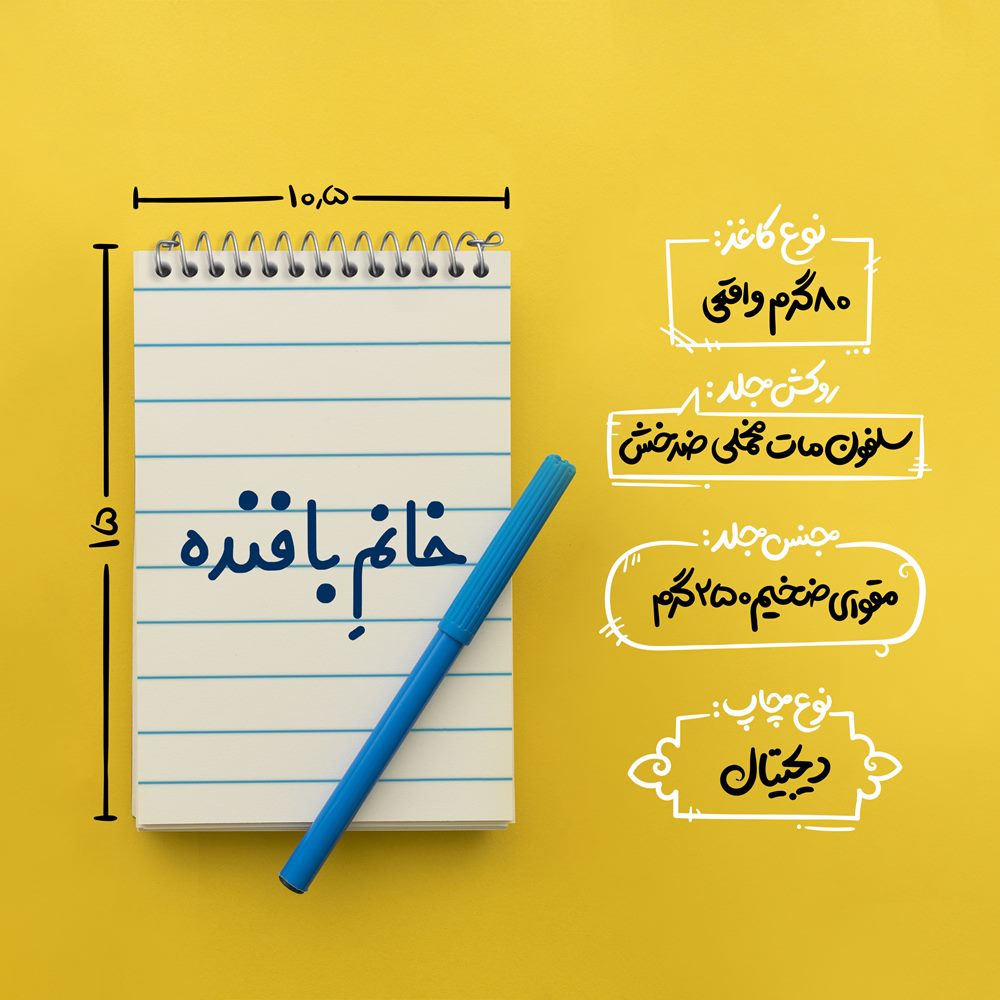 ۱۰٫۵
۱۵
خانمِ بافنده
نوع کاغذ:
۸۰ گرم واقعی
روکش جلد:
سلفون مات مخملی ضدخش
جنس جلد:
مقوای ضخیم ۲۵۰ گرم
نوع چاپ:
دیجیتال